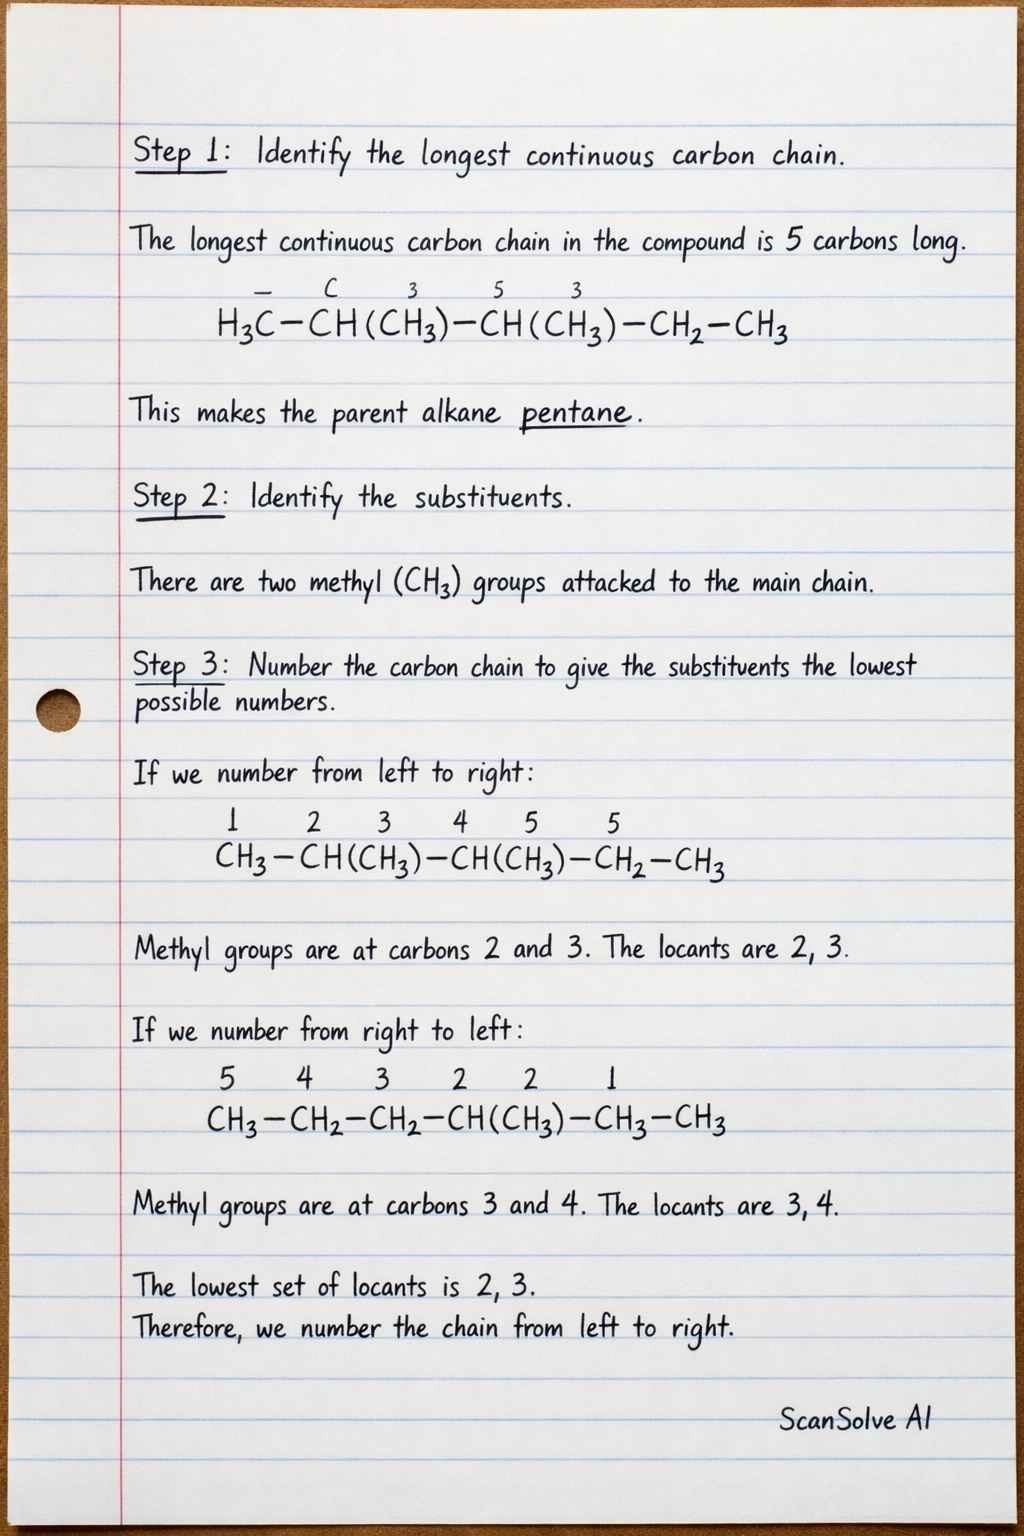 Step 1: Identify the longest continuous carbon chain.
The longest continuous carbon chain in the compound is 5 carbons long.
— C 3 5 3
H₃C—CH(CH₃)—CH(CH₃)—CH₂—CH₃
This makes the parent alkane pentane.
Step 2: Identify the substituents.
There are two methyl (CH₃) groups attacked to the main chain.
Step 3: Number the carbon chain to give the substituents the lowest
possible numbers.
If we number from left to right:
1 2 3 4 5 5
CH₃—CH(CH₃)—CH(CH₃)—CH₂—CH₃
Methyl groups are at carbons 2 and 3. The locants are 2, 3.
If we number from right to left:
5 4 3 2 2 1
CH₃—CH₂—CH₂—CH(CH₃)—CH₃—CH₃
Methyl groups are at carbons 3 and 4. The locants are 3, 4.
The lowest set of locants is 2, 3.
Therefore, we number the chain from left to right.
ScanSolve AI